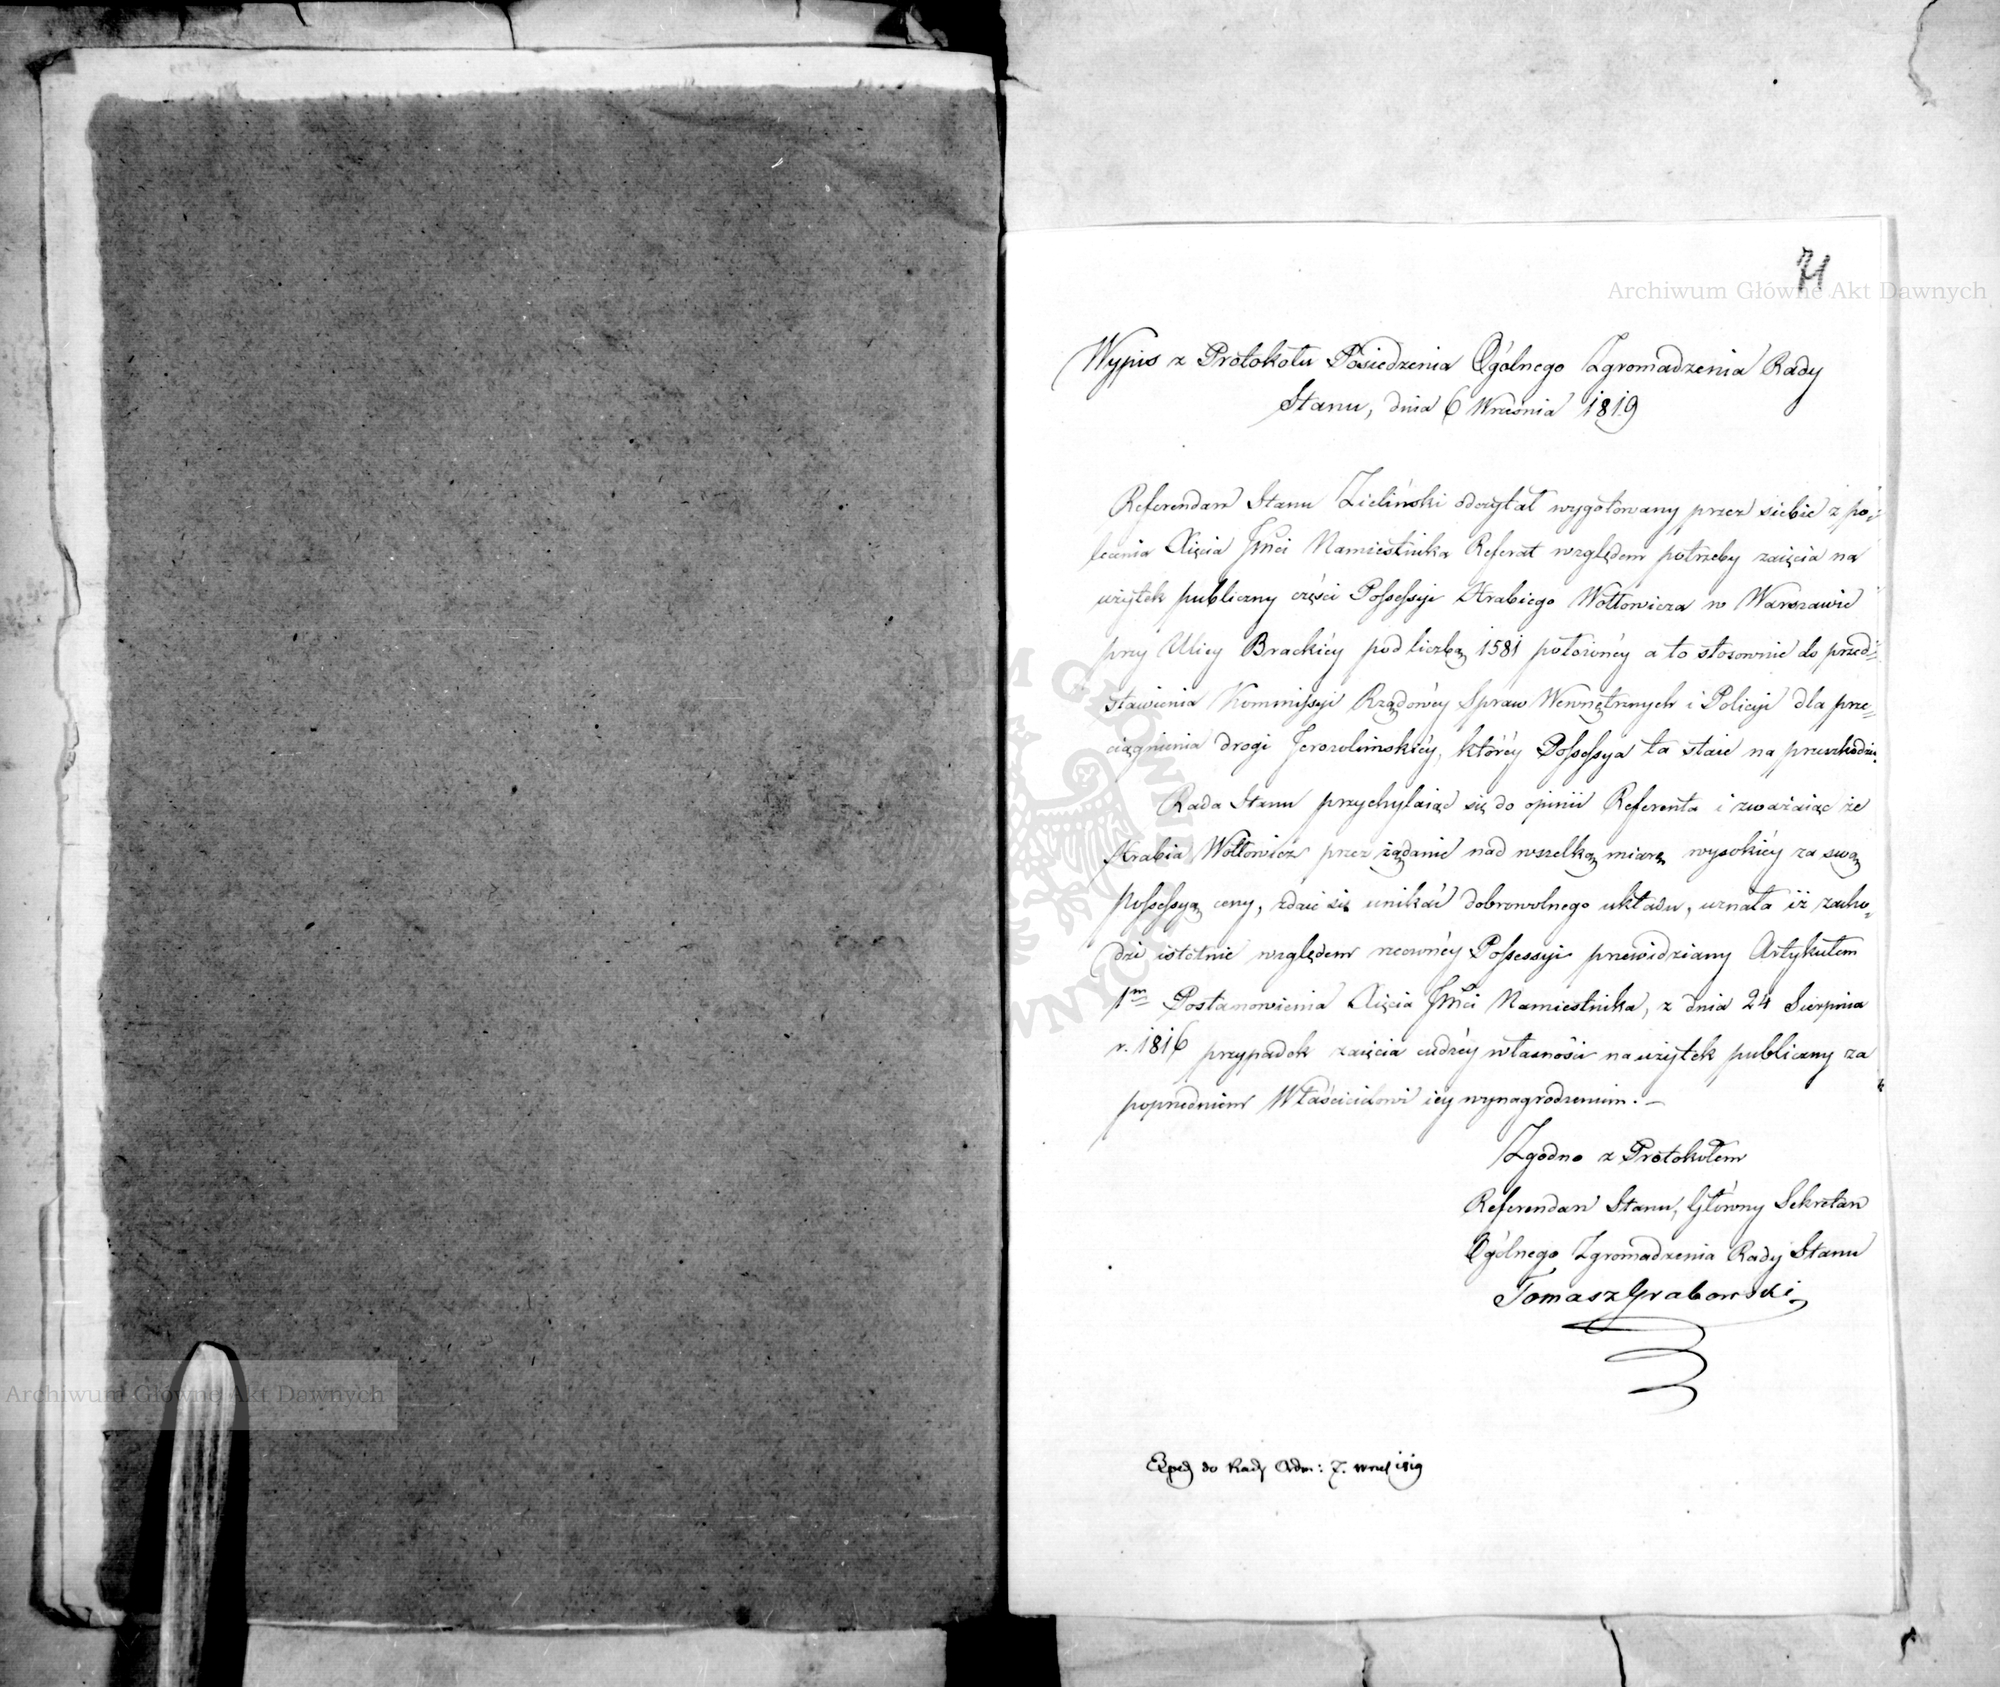 71
Archiwum Główne Akt Dawnych
Wypis z Protokołu Posiedzenia Ogólnego Zgromadzenia Rady
Stanu, dnia 6 Września 1819
Referendarz Stanu Zieliński odczytał wygotowany przez siebie z po=
lecenia Xięcia JMci Namiestnika Referat względem potrzeby zaięcia na
użytek publiczny części Possessyi Hrabiego Wołłowicza w Warszawie
przy Ulicy Brackiéy pod liczbą 1581 położonéy a to stosownie do przed=
stawienia Kommissyi Rządowéy Spraw Wewnętrznych i Policyi dla prze=
ciągnienia drogi Jerozolimskiéy, któréy Possessya ta staie na przeszkodzie.
Rada Stanu przychylaiąc się do opinii Referenta i zważaiąc że
Hrabia Wołłowicz przez żądanie nad wszelką miarę wysokiéy za swą
possessyą ceny, zdaie się unikać dobrowolnego układu, uznała iż zacho=
dzi istotnie względem rzeczonéy Possessyi przewidziany Artykułem
1m Postanowienia Xięcia JMci Namiestnika, z dnia 24 Sierpnia
r. 1816 przypadek zaięcia cudzéy własności na użytek publiczny za
poprzedniem Właścicielowi iey wynagrodzeniem. –
Zgodno z Protokółem
Referendarz Stanu, Główny Sekretarz
Ogólnego Zgromadzenia Rady Stanu
Tomasz Grabowski
Exped do Rady Adm: 7. Wrześ 1819
Archiwum Główne Akt Dawnych